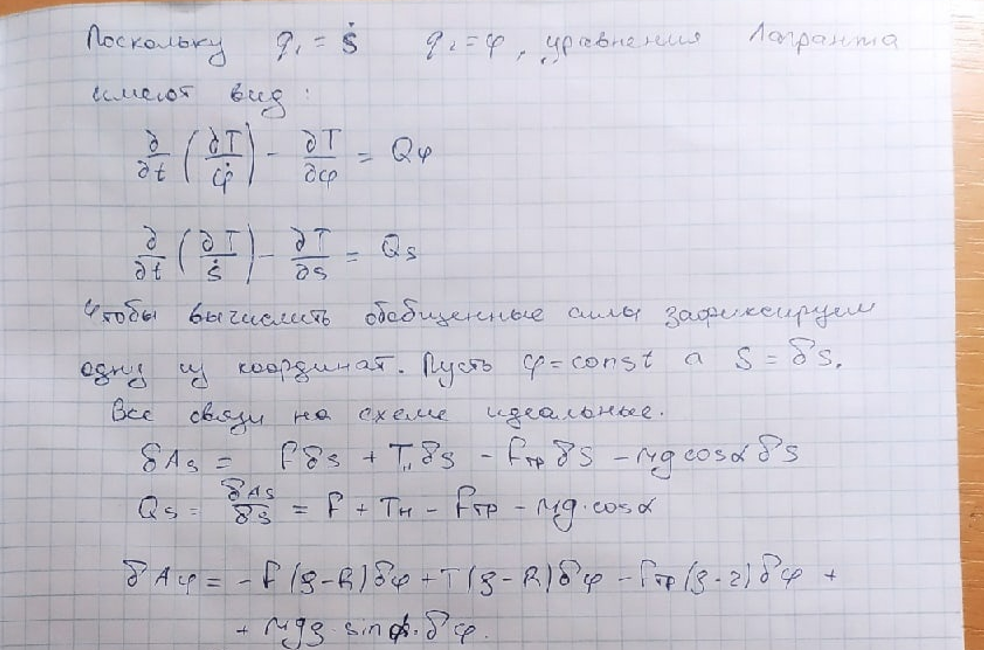 Поскольку q₁ = ṡ q₂ = φ, уравнения Лагранжа
имеют вид:
∂/∂t (∂T/φ̇) - ∂T/∂φ = Qφ
∂/∂t (∂T/ṡ) - ∂T/∂s = Qs
Чтобы вычислить обобщенные силы зафиксируем
одну из координат. Пусть φ = const а S = δs.
Все связи на схеме идеальные.
δAs = Fδs + Tнδs - Fтрδs - Mg cosα δs
Qs = δAs/δs = F + Tн - Fтр - Mg·cosα
δAφ = -F(ρ-R)δφ + T(ρ-R)δφ - Fтр(ρ-r)δφ +
+ Mgρ·sin·δφ.